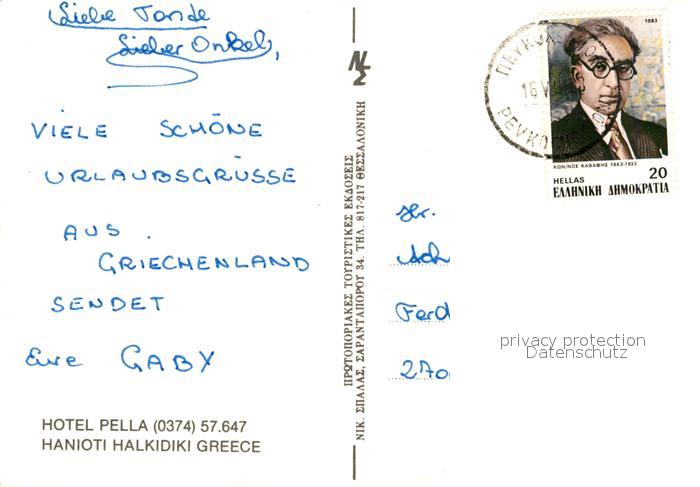 Liebe Tante
Lieber Onkel,
VIELE SCHÖNE
URLAUBSGRÜSSE
AUS
GRIECHENLAND
SENDET
Eure GABY
HOTEL PELLA (0374) 57.647
HANIOTI HALKIDIKI GREECE
ΠΡΩΤΟΠΟΡΙΑΚΕΣ ΤΟΥΡΙΣΤΙΚΕΣ ΕΚΔΟΣΕΙΣ
ΝΙΚ. ΣΠΑΛΑΣ, ΣΑΡΑΝΤΑΠΟΡΟΥ 34. ΤΗΛ. 817-217 ΘΕΣΣΑΛΟΝΙΚΗ
1983
ΚΩΝ/ΝΟΣ ΚΑΒΑΦΗΣ 1863-1933
HELLAS 20
ΕΛΛΗΝΙΚΗ ΔΗΜΟΚΡΑΤΙΑ
ΠΕΥΚΟΧ
16 V
PEVKO
Ach
Ferd
270
privacy protection
Datenschutz